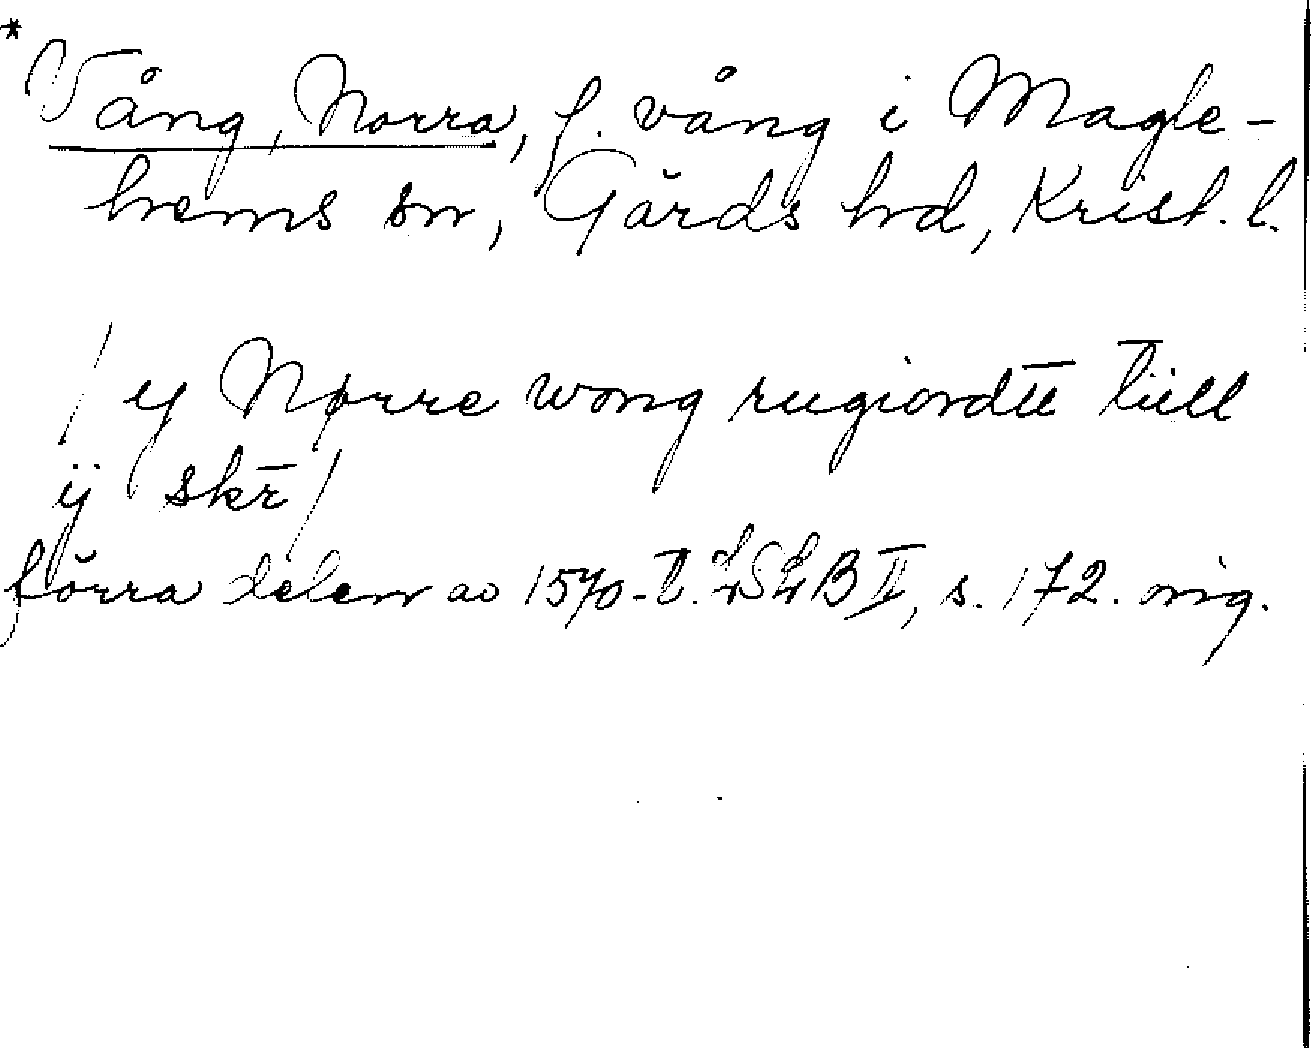 *Vång, Norra, f. vång i Magle-
hems sn, Gärds hd, Krist. l.
/ y Nørre wong rugiordt̄t t̄iill
ÿ skr̄ /
förra delen av 1570-t. LSLB II, s. 172. orig.